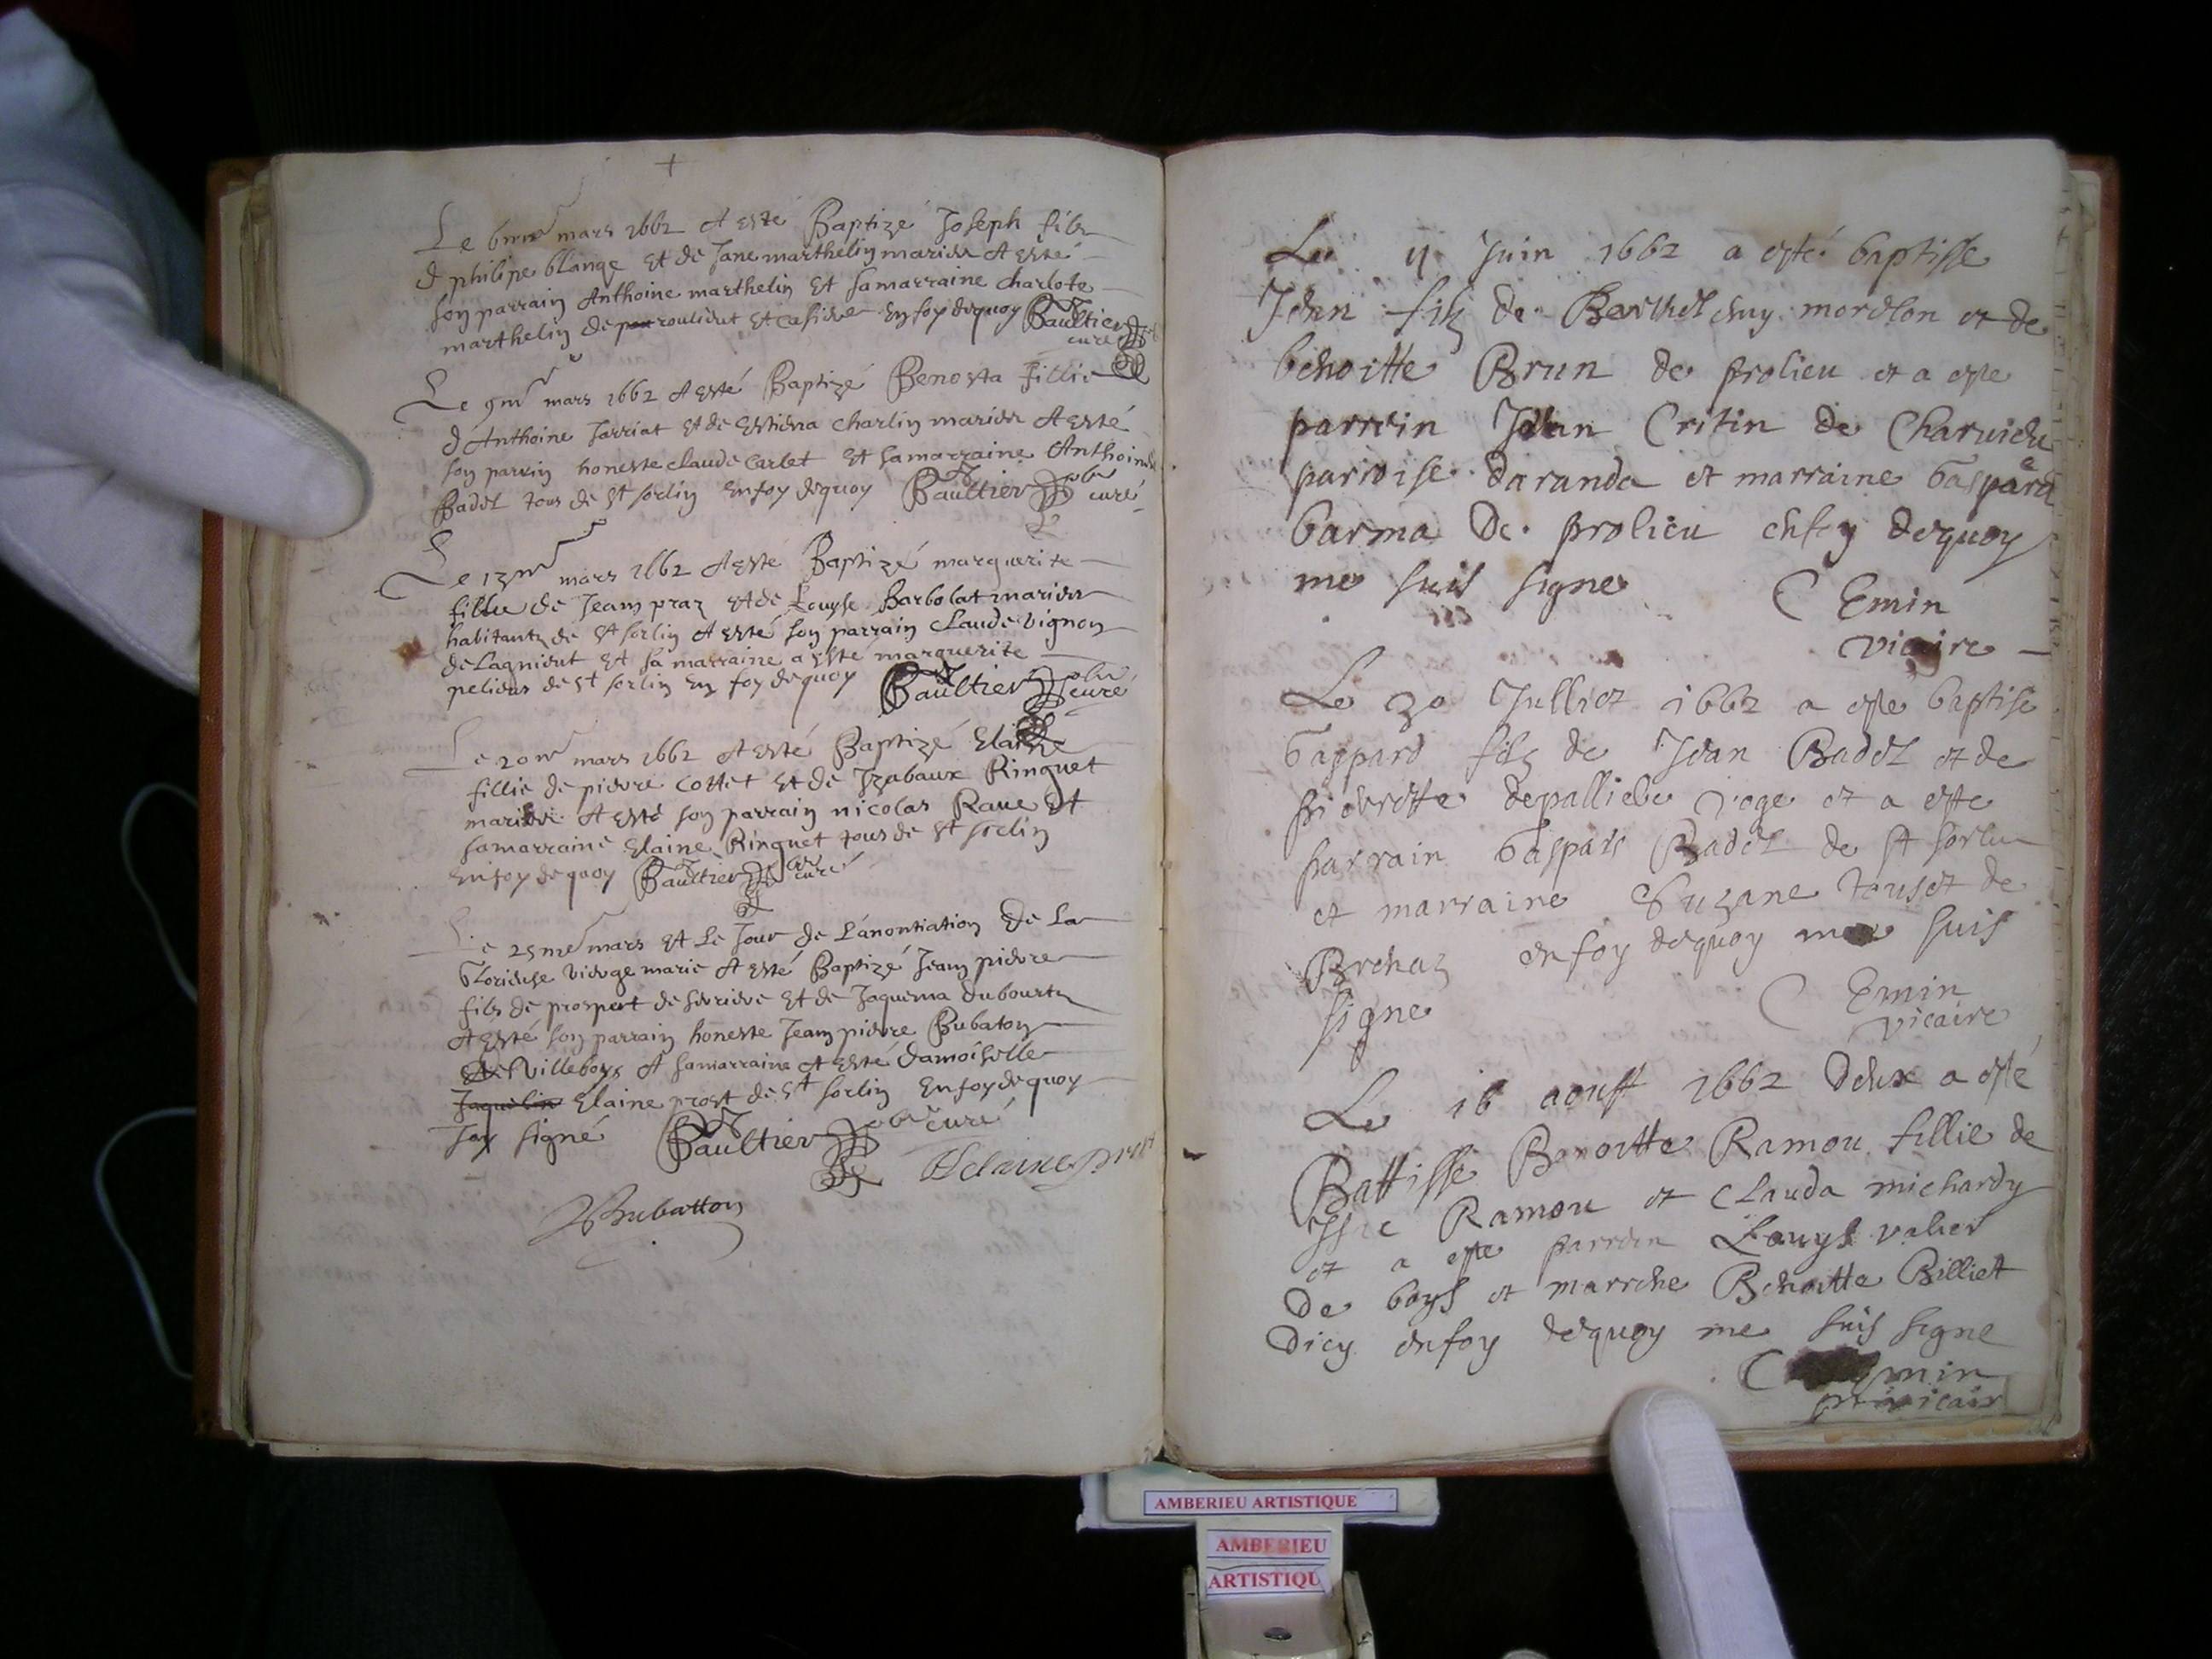 +
Le 6me mars 1662 A esté Baptizé Joseph fils
d philipe blange et de Jane marthelin mariés A esté
son parrain Anthoine marthelin et sa marraine charlote
marthelin de et en foy dequoy Baultier
curé
Le 9me mars 1662 A esté Baptizé Benoita fillie
d'Anthoine Jarriat et de Estiena charlin mariés A esté
son parrin honeste claude carlet et sa marraine Anthoine
Badel tous de st sorlin en foy dequoy Baultier pbr curé
Le 13me mars 1662 A esté Baptizé marguerite
fillie de Jean praz et de Louyse Barbolat mariés
habitants de st sorlin A esté son parrain claude vignon
de Lagnieut et sa marraine a esté marguerite
de st sorlin en foy dequoy Baultier pbr curé
Le 20me mars 1662 A esté Baptizé Elaine
fillie de pierre cottet et de Izabaux Ringuet
mariés A esté son parrain nicolas Raue et
sa marraine Elaine Ringuet tous de st sorlin
en foy dequoy Baultier curé
Le 25me mars et le Jour de L'anontiation de la
Glorieuse vierge marie A esté Baptizé Jean pierre
fils de prospert de et de Jaquema dubourt
A esté son parrain honeste Jean pierre Bubaton
de Villeboys et sa marraine A esté damoiselle
Elaine prost de st sorlin en foy dequoy
Jay signé Baultier pbr curé
Bubatton Helaine prost
Le 11 Juin 1662 a esté baptisse
Jean filz de Barthelemy morelon et de
benoitte Brun de prolieu et a este
parrein Jean Critin de Charvieu
parroise daranda et marraine Gaspara
barma De prolieu enfoy dequoy
me suis signe C Emin
vicaire
Le 30 Julliet 1662 a este baptise
Gaspard filz de Jean Badel et de
pierrette et a este
parrain Gaspars Badel de st sorlin
et marraine Suzane touset de
Brenaz en foy dequoy me suis
signe C Emin
vicaire
Le 16 aoust 1662 deux a esté
Battisse Benoitte Ramou fillie de
Ramou et Clauda michardy
et a este parrein Louys valier
De boys et marrene Benoitte Billiet
Dicy enfoy dequoy me suis signe
C Emin
vicair